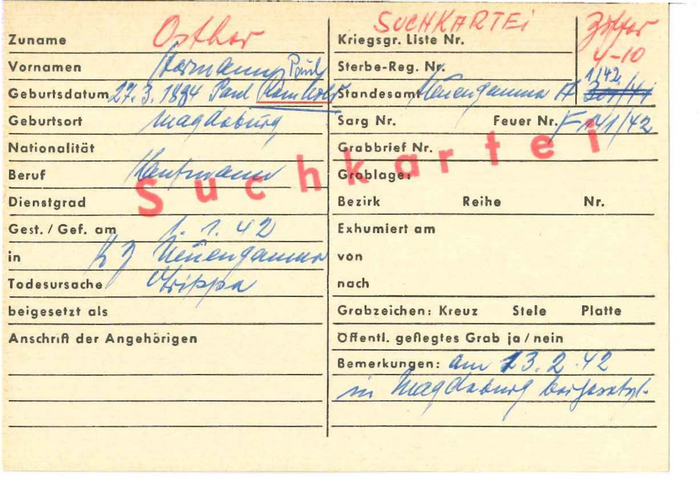 Zuname Osther
Vornamen Hermann Paul
Geburtsdatum 27.3.1894 Paul
Geburtsort Magdeburg
Nationalität
Beruf Kaufmann
Dienstgrad
Gest./Gef. am 1.1.42
in KZ Neuengamme
Todesursache Grippe
beigesetzt als
Anschrift der Angehörigen
SUCHKARTEI
4-10
Kriegsgr. Liste Nr.
Sterbe-Reg. Nr.
1/42
Standesamt Neuengamme A
Sarg Nr. Feuer Nr. F 141/42
Grabbrief Nr.
Grablage:
Bezirk Reihe Nr.
Exhumiert am
von
nach
Grabzeichen: Kreuz Stele Platte
Öffentl. gepflegtes Grab ja/nein
Bemerkungen: am 23.2.42
in Magdeburg beigesetzt.
Suchkartei